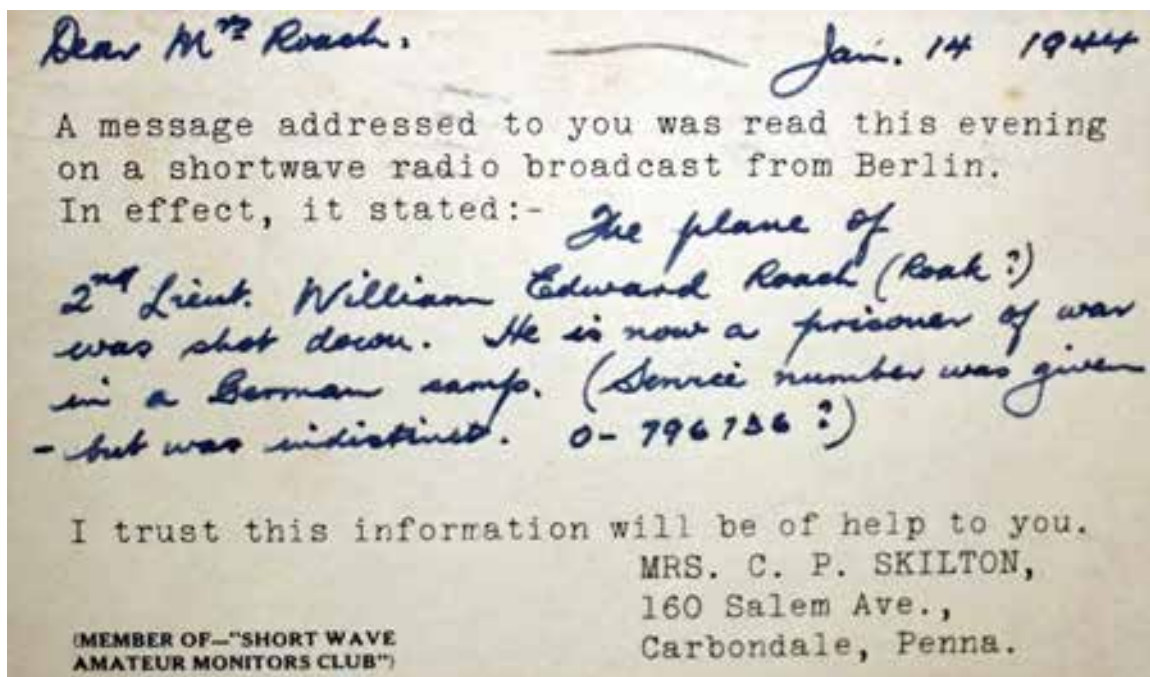 Dear Mrs Roach. Jan. 14 1944
A message addressed to you was read this evening
on a shortwave radio broadcast from Berlin.
In effect, it stated:- The plane of
2nd Lieut. William Edward Roach (Roak?)
was shot down. He is now a prisoner of war
in a German camp. (Service number was given
- but was indistinct. O-796736?)
I trust this information will be of help to you.
MRS. C. P. SKILTON,
160 Salem Ave.,
Carbondale, Penna.
(MEMBER OF—"SHORT WAVE
AMATEUR MONITORS CLUB")